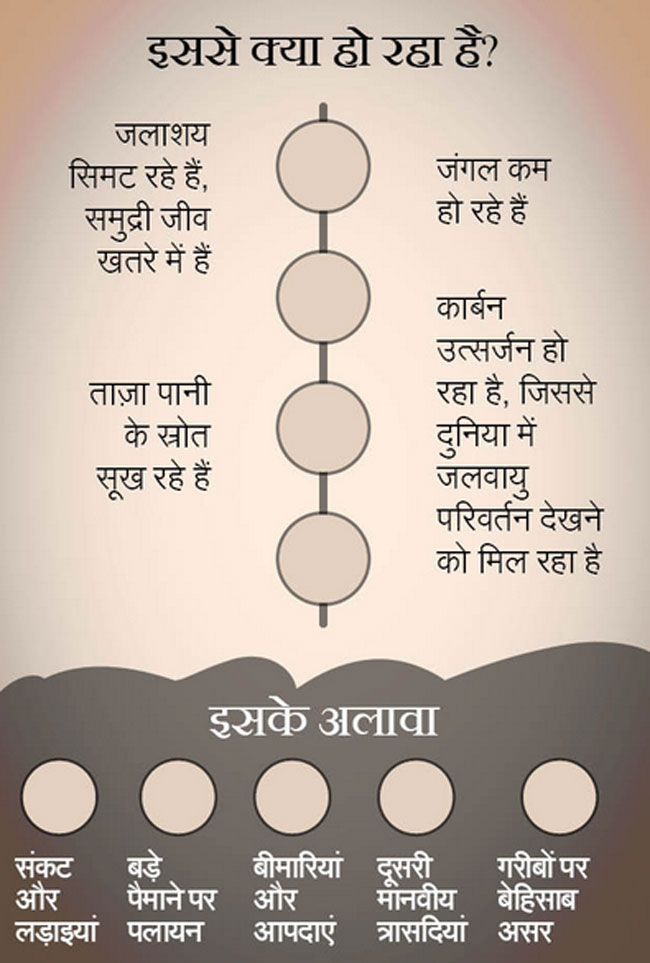 इससे क्या हो रहा है?
जलाशय
सिमट रहे हैं,
समुद्री जीव
खतरे में हैं
जंगल कम
हो रहे हैं
ताज़ा पानी
के स्रोत
सूख रहे हैं
कार्बन
उत्सर्जन हो
रहा है, जिससे
दुनिया में
जलवायु
परिवर्तन देखने
को मिल रहा है
इसके अलावा
संकट
और
लड़ाइयां
बड़े
पैमाने पर
पलायन
बीमारियां
और
आपदाएं
दूसरी
मानवीय
त्रासदियां
गरीबों पर
बेहिसाब
असर